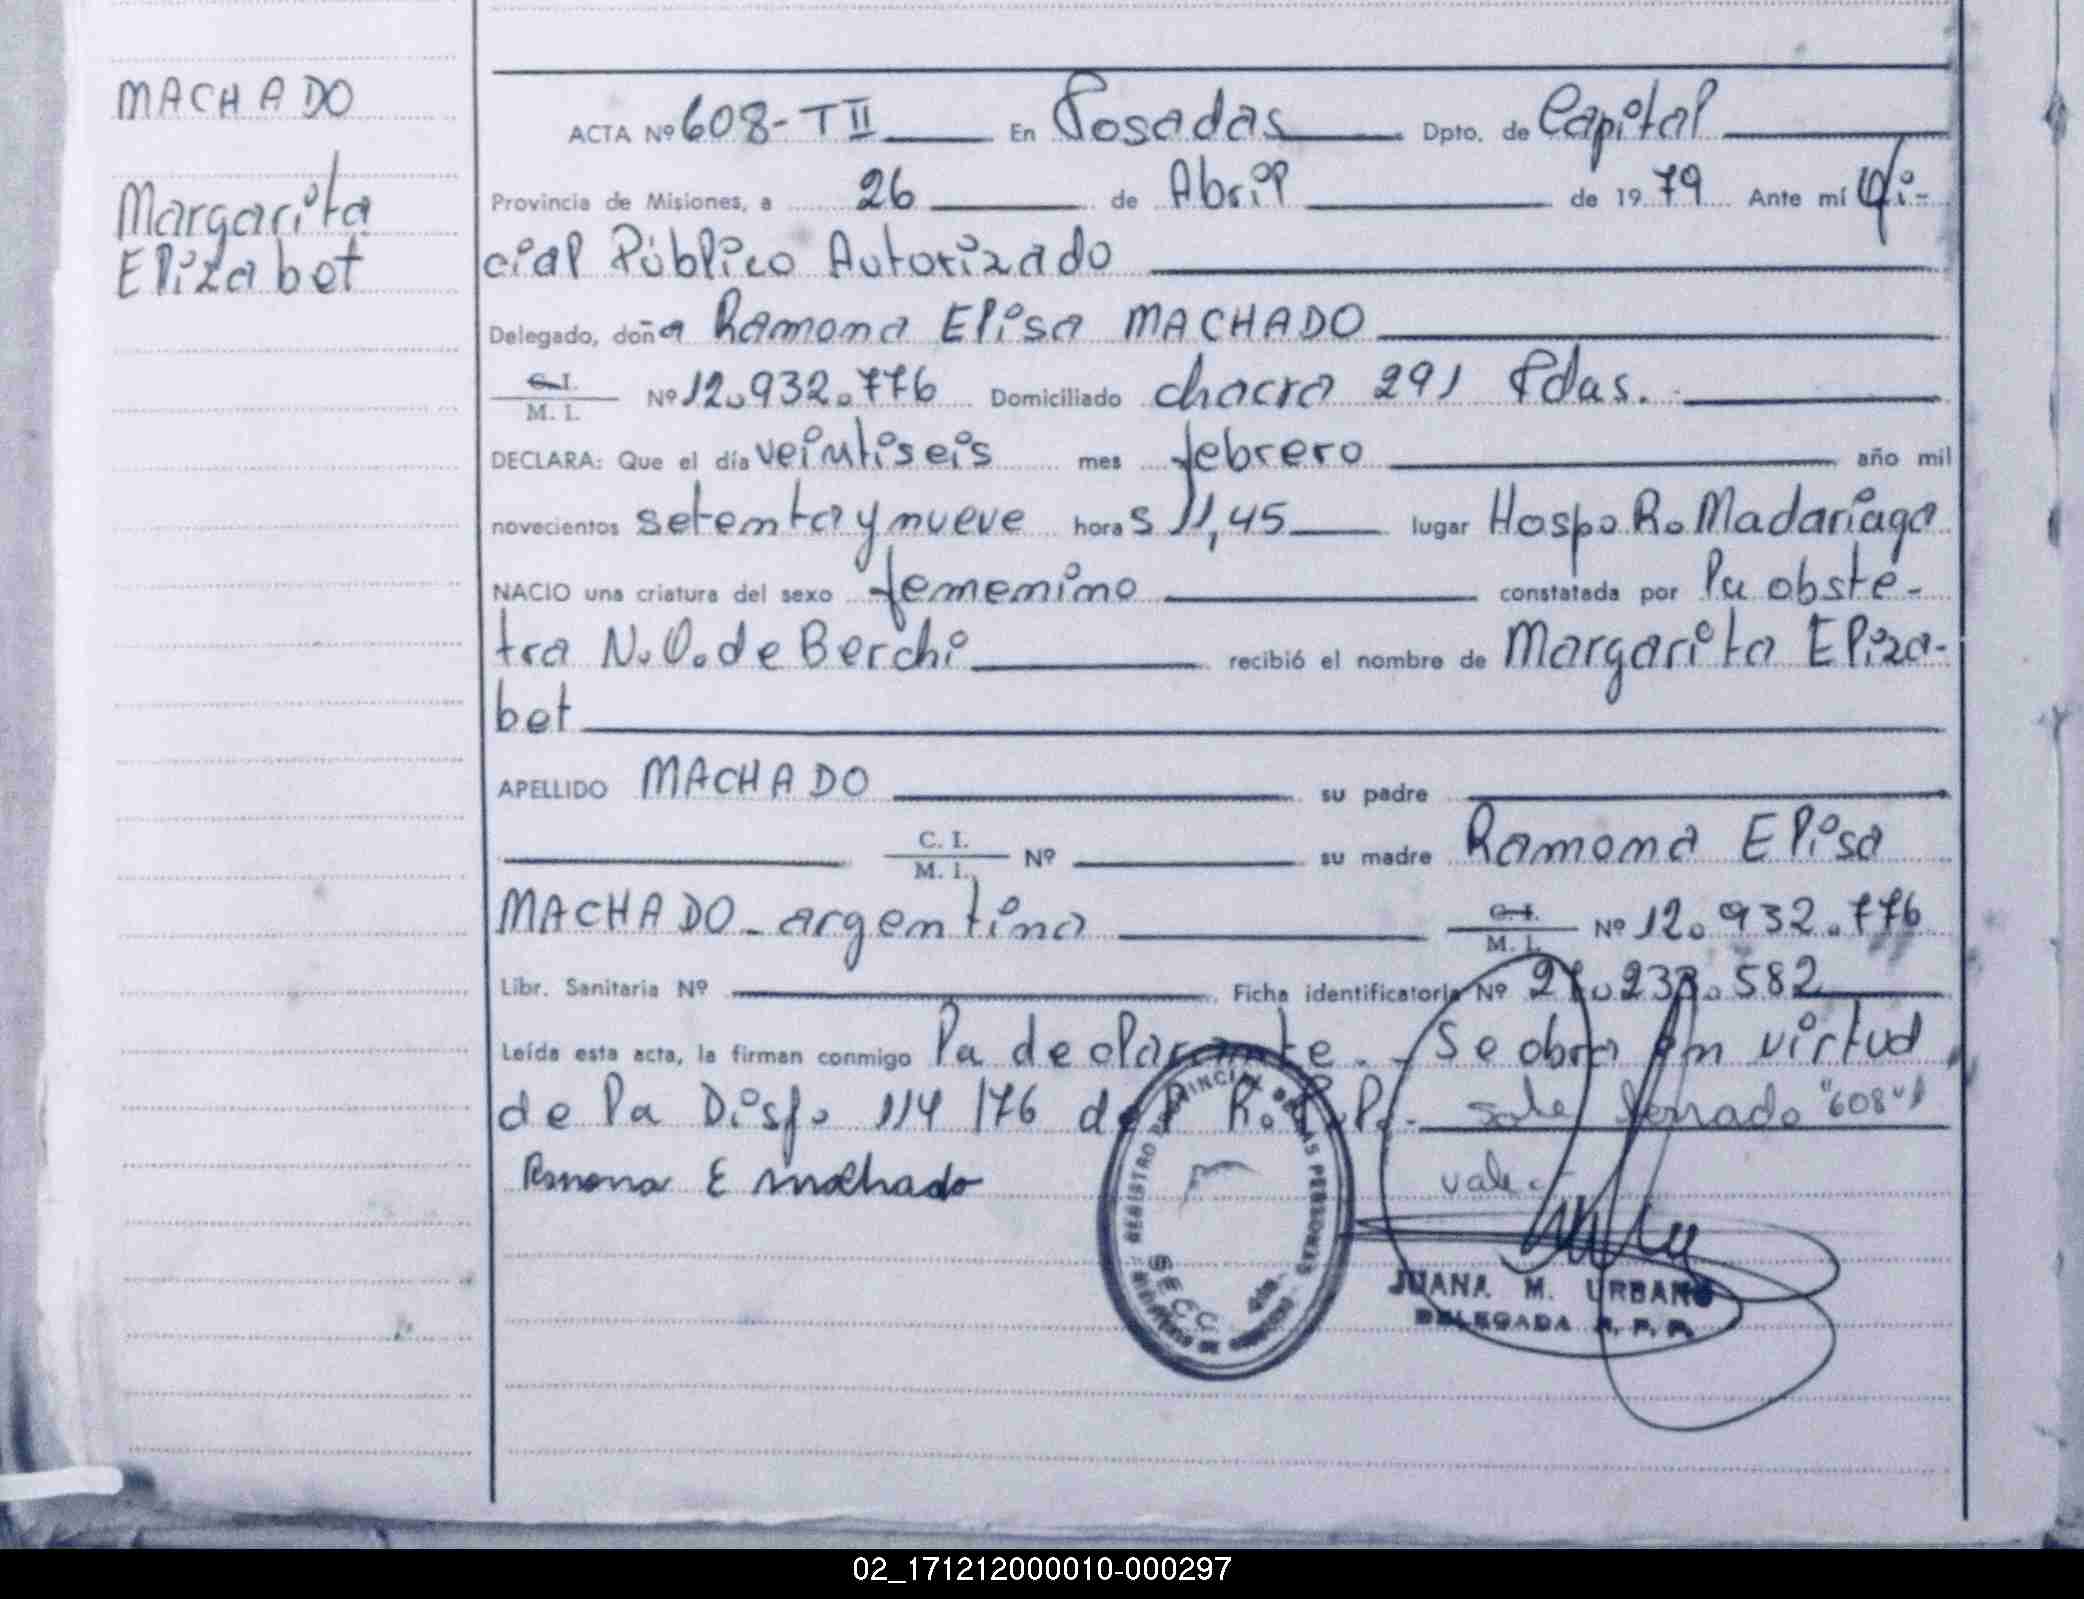 MACHADO
Margarita
Elizabet
ACTA Nº 608-TII En Posadas Dpto. de Capital
Provincia de Misiones, a 26 de Abril de 1979 Ante mí Ofi-
cial Público Autorizado
Delegado, doña Ramona Elisa MACHADO
C.I.
M. I. Nº 12.932.776 Domiciliado chacra 291 Pdas.
DECLARA: Que el día veintiseis mes febrero año mil
novecientos setenta y nueve horas 11,45 lugar Hosp. R. Madariaga
NACIO una criatura del sexo femenino constatada por la obste-
tra N.O. de Berchi recibió el nombre de Margarita Eliza-
bet
APELLIDO MACHADO su padre
C. I.
M. I. Nº su madre Ramona Elisa
MACHADO - argentina C.I.
M. I. Nº 12.932.776
Libr. Sanitaria Nº Ficha identificatoria Nº 582
Leída esta acta, la firman conmigo la declarante. - Se obra en virtud
de la Disp. 114/76 del R. P. - "608"
vale.-
Ramona E machado
REGISTRO PROVINCIAL DE LAS PERSONAS
SECC
MINISTERIO DE GOBIERNO
JUANA M. URBANO
DELEGADA R. P. P.
02_171212000010-000297